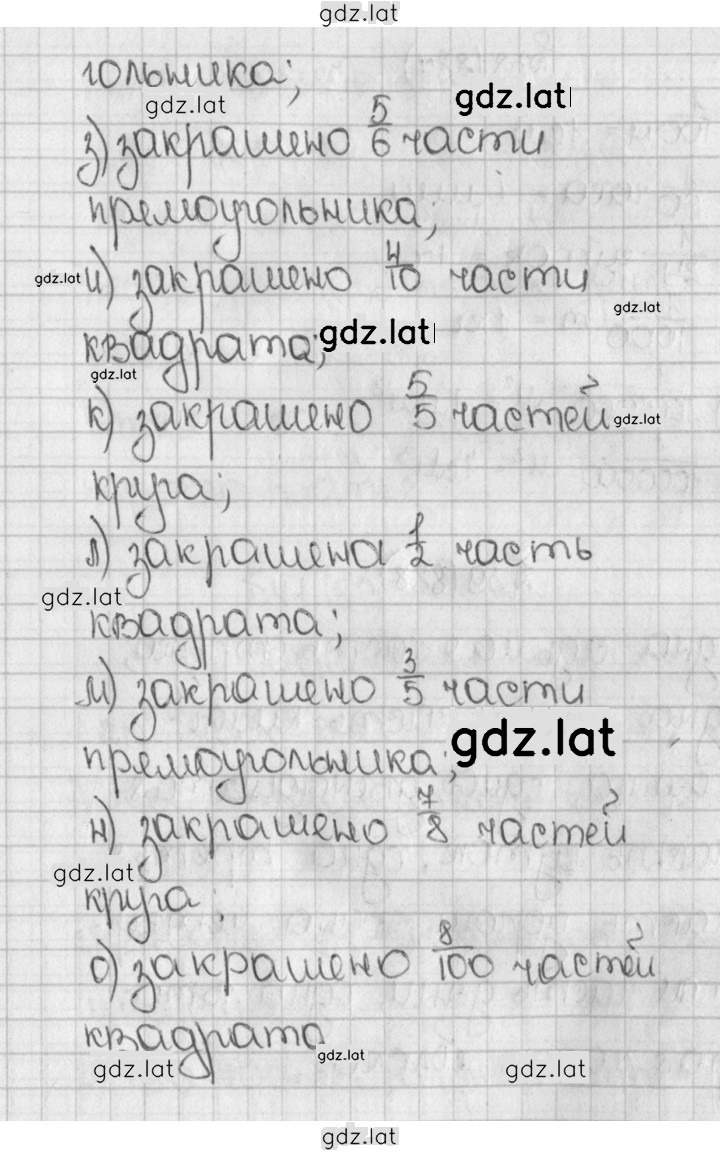 gdz.lat
гольника;
gdz.lat
gdz.lat
з) закрашено 5/6 части
прямоугольника,
gdz.lat
и) закрашено 4/10 части
gdz.lat
квадрата;
gdz.lat
gdz.lat
к) закрашено 5/5 частей
gdz.lat
круга;
л) закрашена 1/2 часть
gdz.lat
квадрата;
м) закрашено 3/5 части
gdz.lat
прямоугольника;
н) закрашено 7/8 частей
gdz.lat
круга;
о) закрашено 8/100 частей
квадрата
gdz.lat
gdz.lat
gdz.lat
gdz.lat